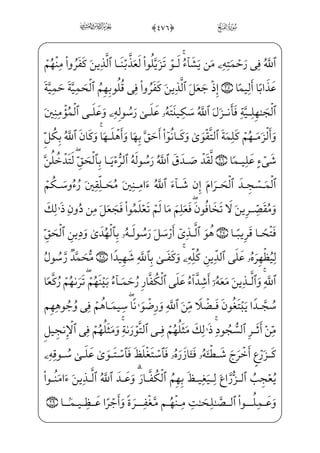 الجزء السادس والعشرون ﴿٤٧٦﴾ سورة الفتح
ٱللَّهُ فِى رَحْمَتِهِۦ مَن يَشَآءُ ۚ لَوْ تَزَيَّلُوا۟ لَعَذَّبْنَا ٱلَّذِينَ كَفَرُوا۟ مِنْهُمْ
عَذَابًا أَلِيمًا ۝٢٥ إِذْ جَعَلَ ٱلَّذِينَ كَفَرُوا۟ فِى قُلُوبِهِمُ ٱلْحَمِيَّةَ حَمِيَّةَ
ٱلْجَـٰهِلِيَّةِ فَأَنزَلَ ٱللَّهُ سَكِينَتَهُۥ عَلَىٰ رَسُولِهِۦ وَعَلَى ٱلْمُؤْمِنِينَ
وَأَلْزَمَهُمْ كَلِمَةَ ٱلتَّقْوَىٰ وَكَانُوٓا۟ أَحَقَّ بِهَا وَأَهْلَهَا ۚ وَكَانَ ٱللَّهُ بِكُلِّ
شَىْءٍ عَلِيمًا ۝٢٦ لَّقَدْ صَدَقَ ٱللَّهُ رَسُولَهُ ٱلرُّءْيَا بِٱلْحَقِّ ۖ لَتَدْخُلُنَّ
ٱلْمَسْجِدَ ٱلْحَرَامَ إِن شَآءَ ٱللَّهُ ءَامِنِينَ مُحَلِّقِينَ رُءُوسَكُمْ
وَمُقَصِّرِينَ لَا تَخَافُونَ ۖ فَعَلِمَ مَا لَمْ تَعْلَمُوا۟ فَجَعَلَ مِن دُونِ ذَٰلِكَ
فَتْحًا قَرِيبًا ۝٢٧ هُوَ ٱلَّذِىٓ أَرْسَلَ رَسُولَهُۥ بِٱلْهُدَىٰ وَدِينِ ٱلْحَقِّ
لِيُظْهِرَهُۥ عَلَى ٱلدِّينِ كُلِّهِۦ ۚ وَكَفَىٰ بِٱللَّهِ شَهِيدًا ۝٢٨ مُّحَمَّدٌ رَّسُولُ
ٱللَّهِ ۚ وَٱلَّذِينَ مَعَهُۥٓ أَشِدَّآءُ عَلَى ٱلْكُفَّارِ رُحَمَآءُ بَيْنَهُمْ ۖ تَرَىٰهُمْ رُكَّعًا
سُجَّدًا يَبْتَغُونَ فَضْلًا مِّنَ ٱللَّهِ وَرِضْوَٰنًا ۖ سِيمَاهُمْ فِى وُجُوهِهِم
مِّنْ أَثَرِ ٱلسُّجُودِ ۚ ذَٰلِكَ مَثَلُهُمْ فِى ٱلتَّوْرَىٰةِ ۚ وَمَثَلُهُمْ فِى ٱلْإِنجِيلِ
كَزَرْعٍ أَخْرَجَ شَطْـَٔهُۥ فَـَٔازَرَهُۥ فَٱسْتَغْلَظَ فَٱسْتَوَىٰ عَلَىٰ سُوقِهِۦ
يُعْجِبُ ٱلزُّرَّاعَ لِيَغِيظَ بِهِمُ ٱلْكُفَّارَ ۗ وَعَدَ ٱللَّهُ ٱلَّذِينَ ءَامَنُوا۟
وَعَمِلُوا۟ ٱلصَّـٰلِحَـٰتِ مِنْهُم مَّغْفِرَةً وَأَجْرًا عَظِيمًۢا ۝٢٩